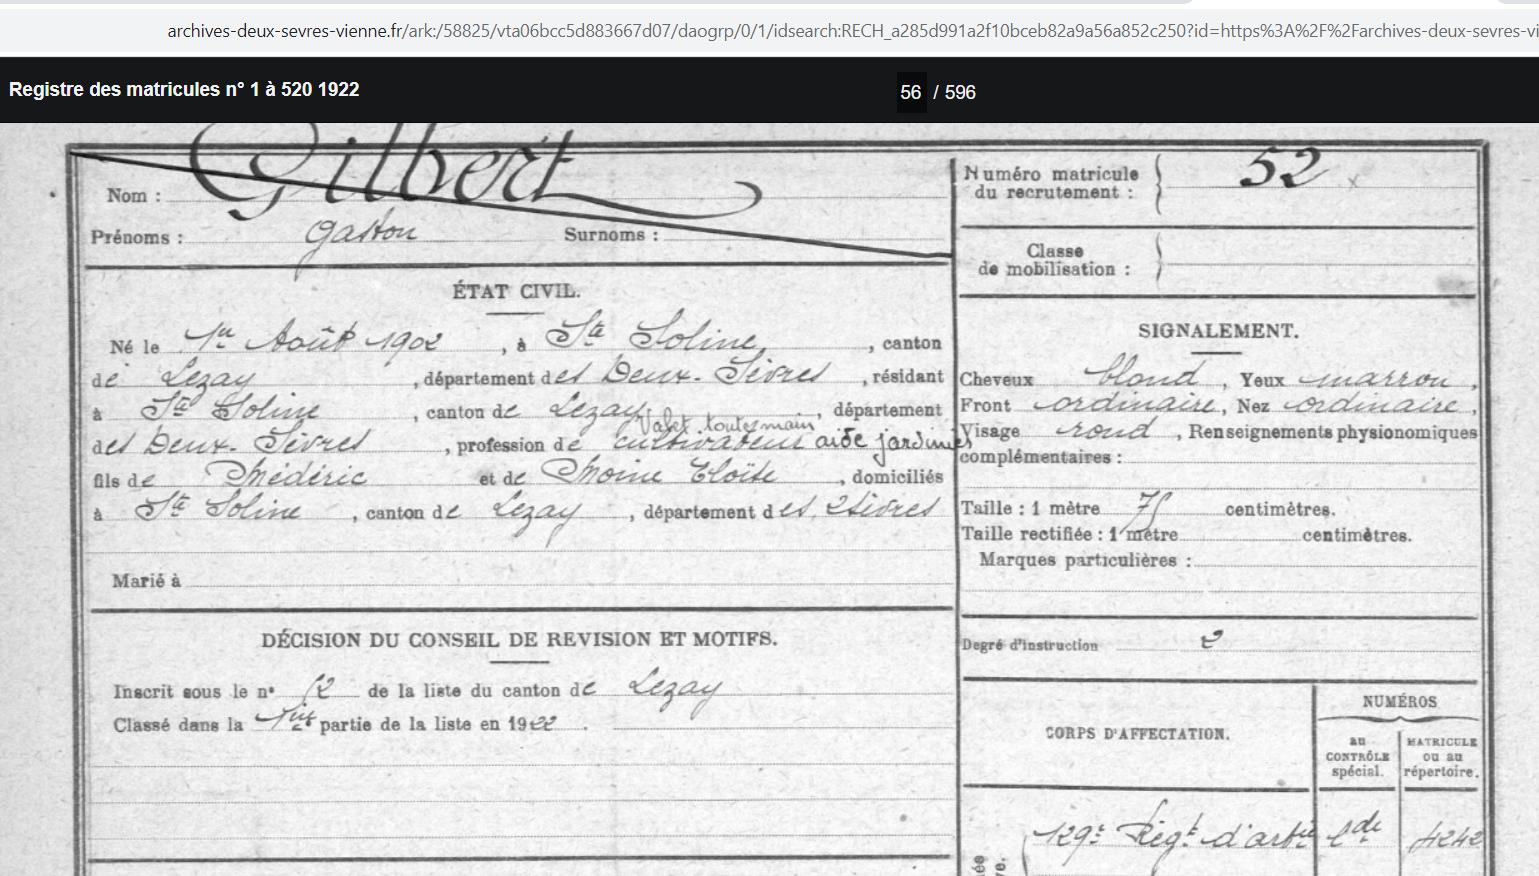 archives-deux-sevres-vienne.fr/ark:/58825/vta06bcc5d883667d07/daogrp/0/1/idsearch:RECH_a285d991a2f10bceb82a9a56a852c250?id=https%3A%2F%2Farchives-deux-sevres-vi
Registre des matricules n° 1 à 520 1922
56 / 596
Nom : Gilbert
Prénoms : Gaston Surnoms :
ÉTAT CIVIL.
Né le 1er Août 1902, à Ste Soline, canton
de Lezay, département des Deux-Sèvres, résidant
à Ste Soline, canton de Lezay, département
Valet toutes main
des Deux-Sèvres, profession de cultivateur aide jardinier
fils de Médéric et de Moine Eloïse, domiciliés
à Ste Soline, canton de Lezay, département des 2 Sèvres
Marié à
DÉCISION DU CONSEIL DE REVISION ET MOTIFS.
Inscrit sous le n° 12 de la liste du canton de Lezay
Classé dans la 1ère partie de la liste en 1922.
Numéro matricule
du recrutement : 52
Classe
de mobilisation :
SIGNALEMENT.
Cheveux blond, Yeux marron,
Front ordinaire, Nez ordinaire,
Visage rond, Renseignements physionomiques
complémentaires :
Taille : 1 mètre 75 centimètres.
Taille rectifiée : 1 mètre centimètres.
Marques particulières :
Degré d'instruction 2
CORPS D'AFFECTATION.
NUMÉROS
au
CONTRÔLE
spécial.
MATRICULE
ou au
répertoire.
129e Régt d'artie 4242